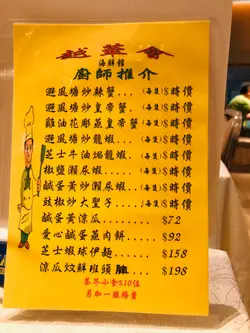 越華會
海鮮館
廚師推介
避風塘炒辣蟹...(每隻)$時價
避風塘炒皇帝蟹..(每隻)$時價
雞油花彫蒸皇帝蟹(每隻)$時價
避風塘炒龍蝦...(每隻)$時價
芝士牛油焗龍蝦.(每隻)$時價
椒鹽瀨尿蝦......(每隻)$時價
鹹蛋黃炒瀨尿蝦..(每隻)$時價
豉椒炒大聖子...(每隻)$時價
鹹蛋黃涼瓜........$72
愛心鹹蛋蒸肉餅....$92
芝士蝦球伊麵.....$158
涼瓜炆鮮斑頭腩...$198
茶芥小食$10位
另加一服務費